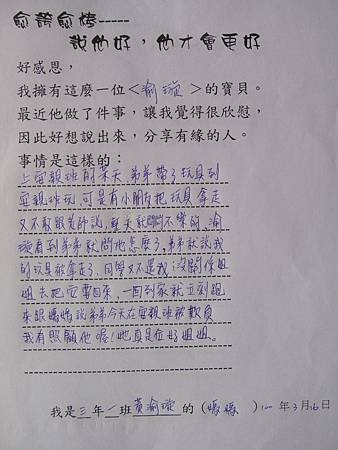 愈誇愈棒-----
說他好，他才會更好
好感恩，
我擁有這麼一位<渝璇>的寶貝。
最近他做了件事，讓我覺得很欣慰，
因此好想說出來，分享有緣的人。
事情是這樣的：
上安親班前某天，弟弟帶了玩具到
安親班玩，可是有小朋友把玩具拿走
又不敢跟老師說，整天就悶悶不樂的，渝
璇看到弟弟就問他怎麼了，弟弟就說我
的玩具被拿走了，同學又不還我，沒關係姐
姐去把它要回來，一回到家就立刻跑
來跟媽媽說弟弟今天在安親班被欺負
我有照顧他喔！她真是位好姐姐。
我是三年一班黃渝璇的（媽媽）100年3月16日